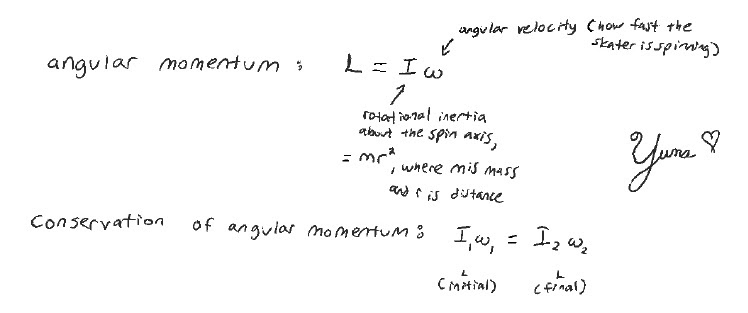 angular velocity (how fast the
skater is spinning)
angular momentum: L = I ω
rotational inertia
about the spin axis,
= mr², where m is mass
and r is distance
Yuna ♡
Conservation of angular momentum: I₁ω₁ = I₂ω₂
L L
(initial) (final)